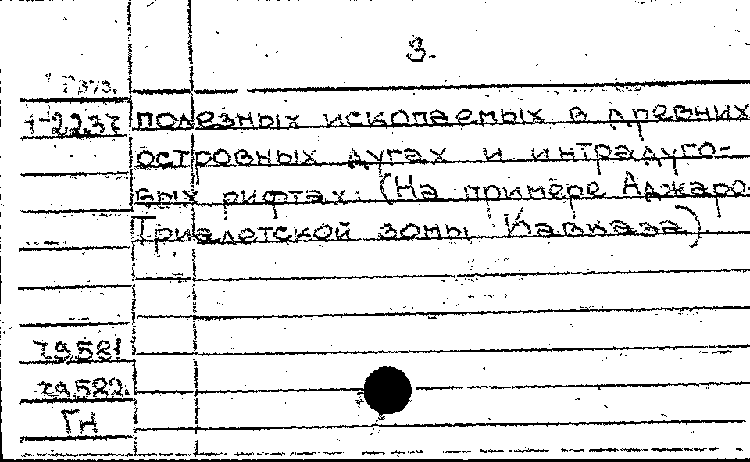 3.
Груз.
1-2237 полезных ископаемых в древних
островных дугах и интрадуго-
вых рифтах. (На примере Аджаро-
Триалетской зоны Кавказа)
79581
79582.
ГН